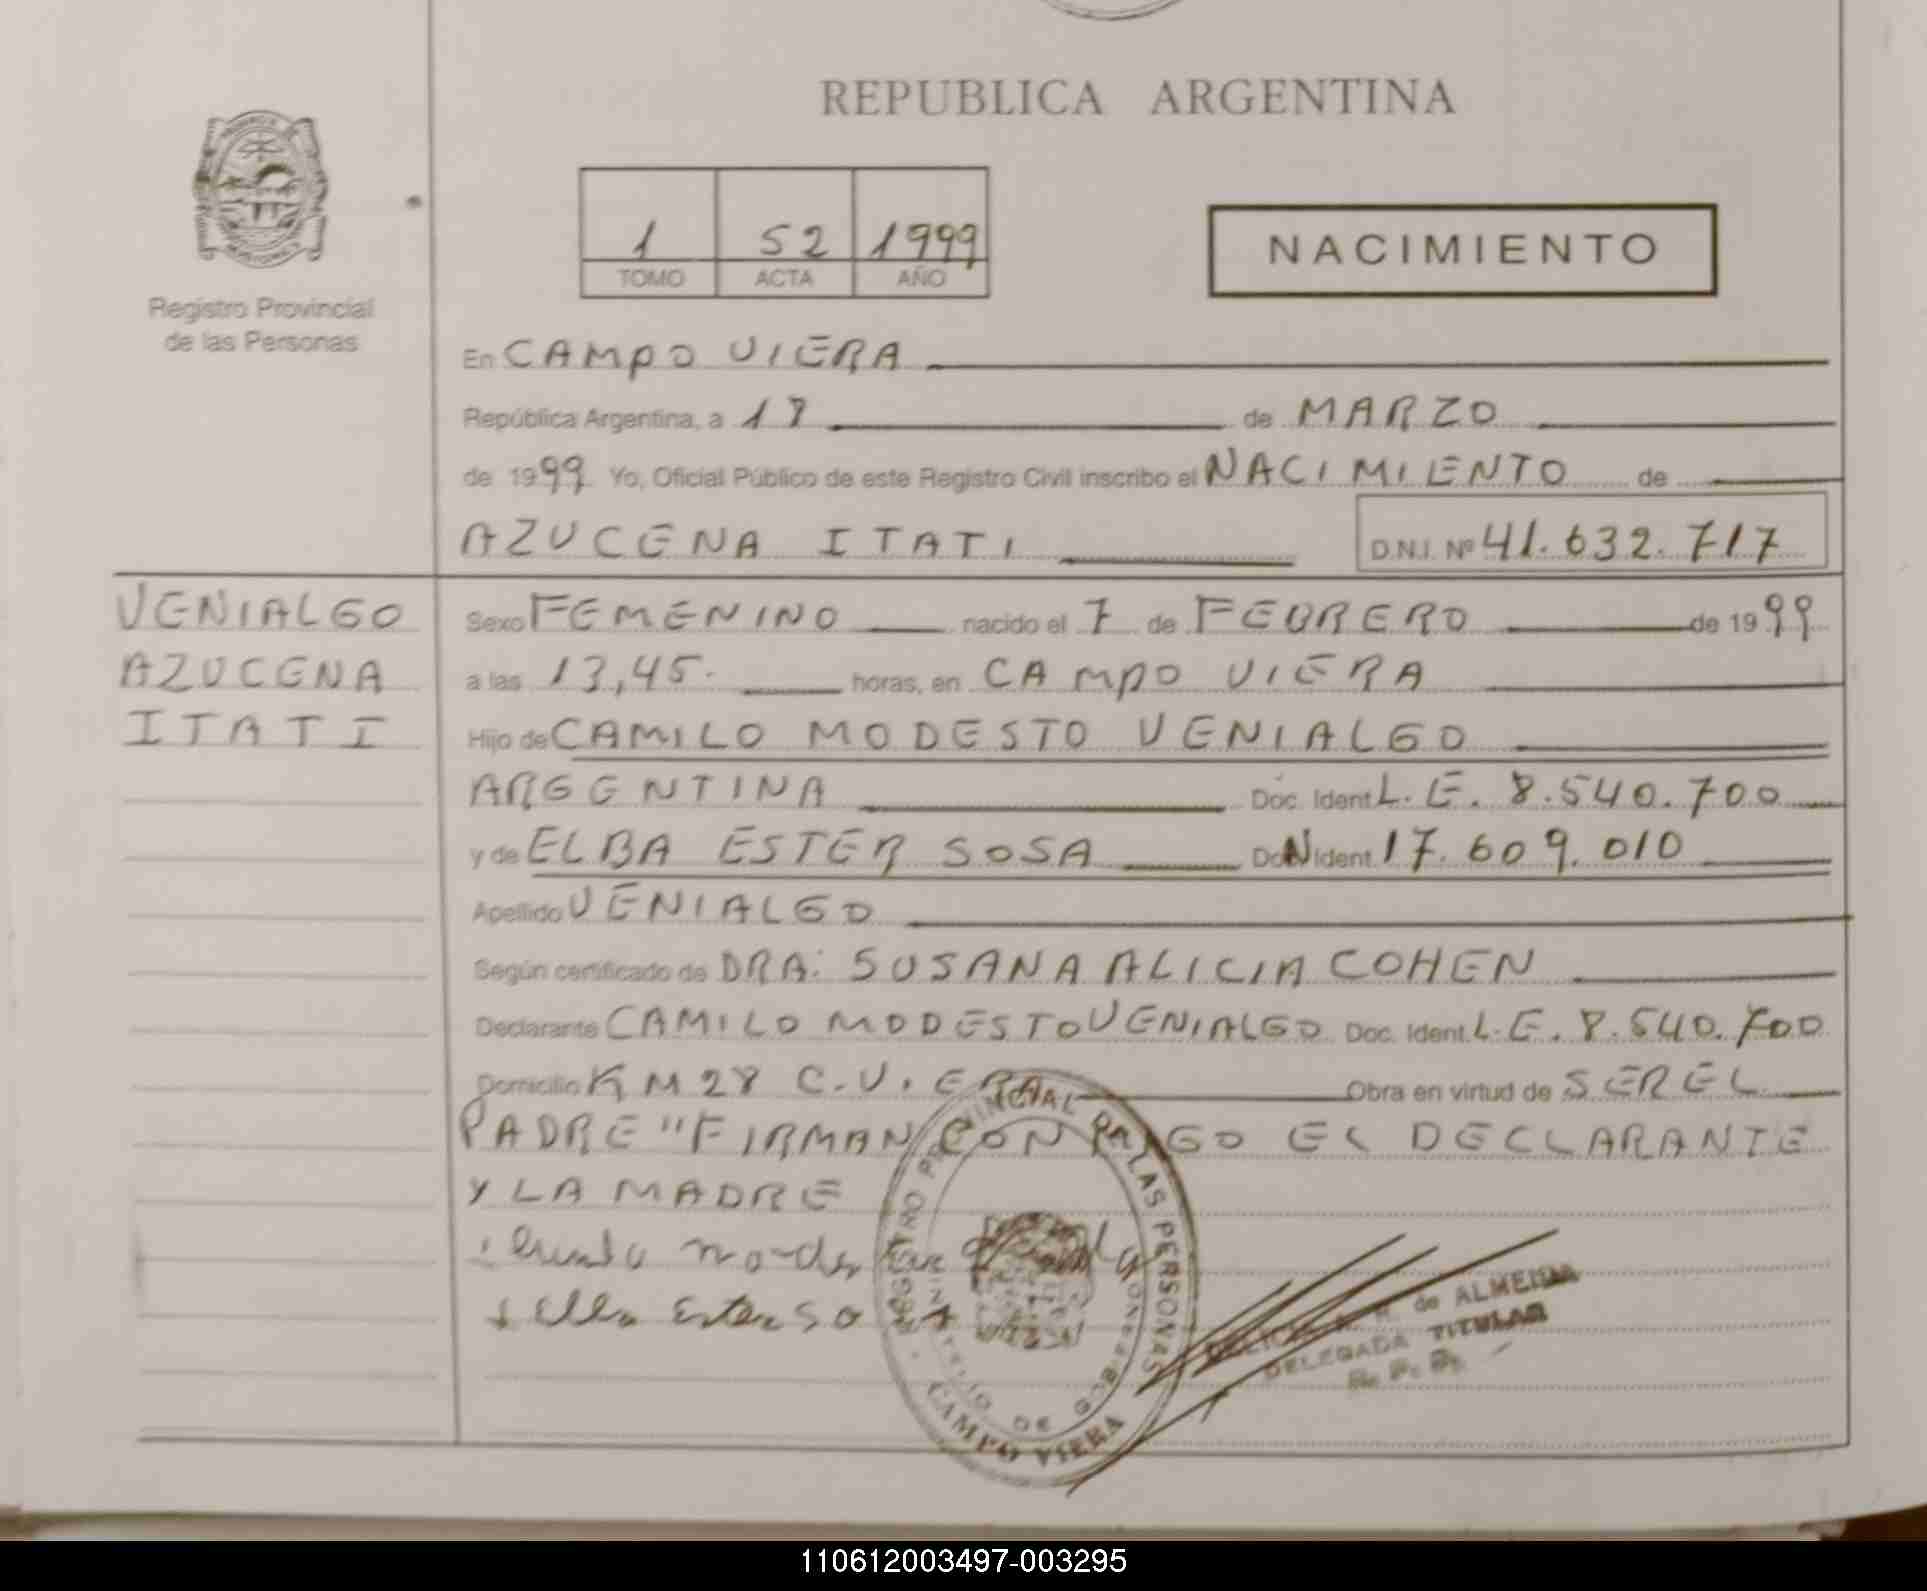 REPUBLICA ARGENTINA
Registro Provincial
de las Personas
1 52 1999
TOMO ACTA AÑO
NACIMIENTO
En CAMPO VIERA
República Argentina, a 18 de MARZO
de 1999 Yo, Oficial Público de este Registro Civil inscribo el NACIMIENTO de
AZUCENA ITATI D.N.I. Nº 41.632.717
VENIALGO
AZUCENA
ITATI
Sexo FEMENINO nacido el 7 de FEBRERO de 1999
a las 13,45. horas, en CAMPO VIERA
Hijo de CAMILO MODESTO VENIALGO
ARGENTINA Doc. Ident. L.E. 8.540.700
y de ELBA ESTER SOSA DocN Ident. 17.609.010
Apellido VENIALGO
Según certificado de DRA: SUSANA ALICIA COHEN
Declarante CAMILO MODESTO VENIALGO Doc. Ident. L.E. 8.540.700
Domicilio KM 28 C. V. ERA Obra en virtud de SER EL
PADRE "FIRMAN CON EL DECLARANTE
Y LA MADRE
REGISTRO PROVINCIAL DE LAS PERSONAS
CAMPO VIERA
de ALMEIDA
DELEGADA TITULAR
R. P. P.
110612003497-003295